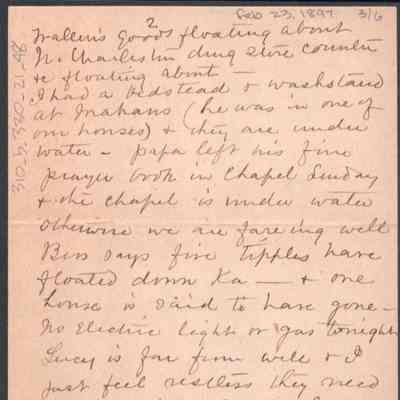 Feb 23, 1897 3/6
2
goods floating about
N. Charleston drug store counter
& floating about —
I had a bedstead & washstand
at Mahans (he was in one of
our houses) & they are under
water — papa left his fine
prayer book in Chapel Sunday
& the chapel is under water
otherwise we are fareing well
Ben says five tipples have
floated down Ka — & one
house is said to have gone —
No Electric light or gas tonight
Lucy is far from well & I
just feel restless they need